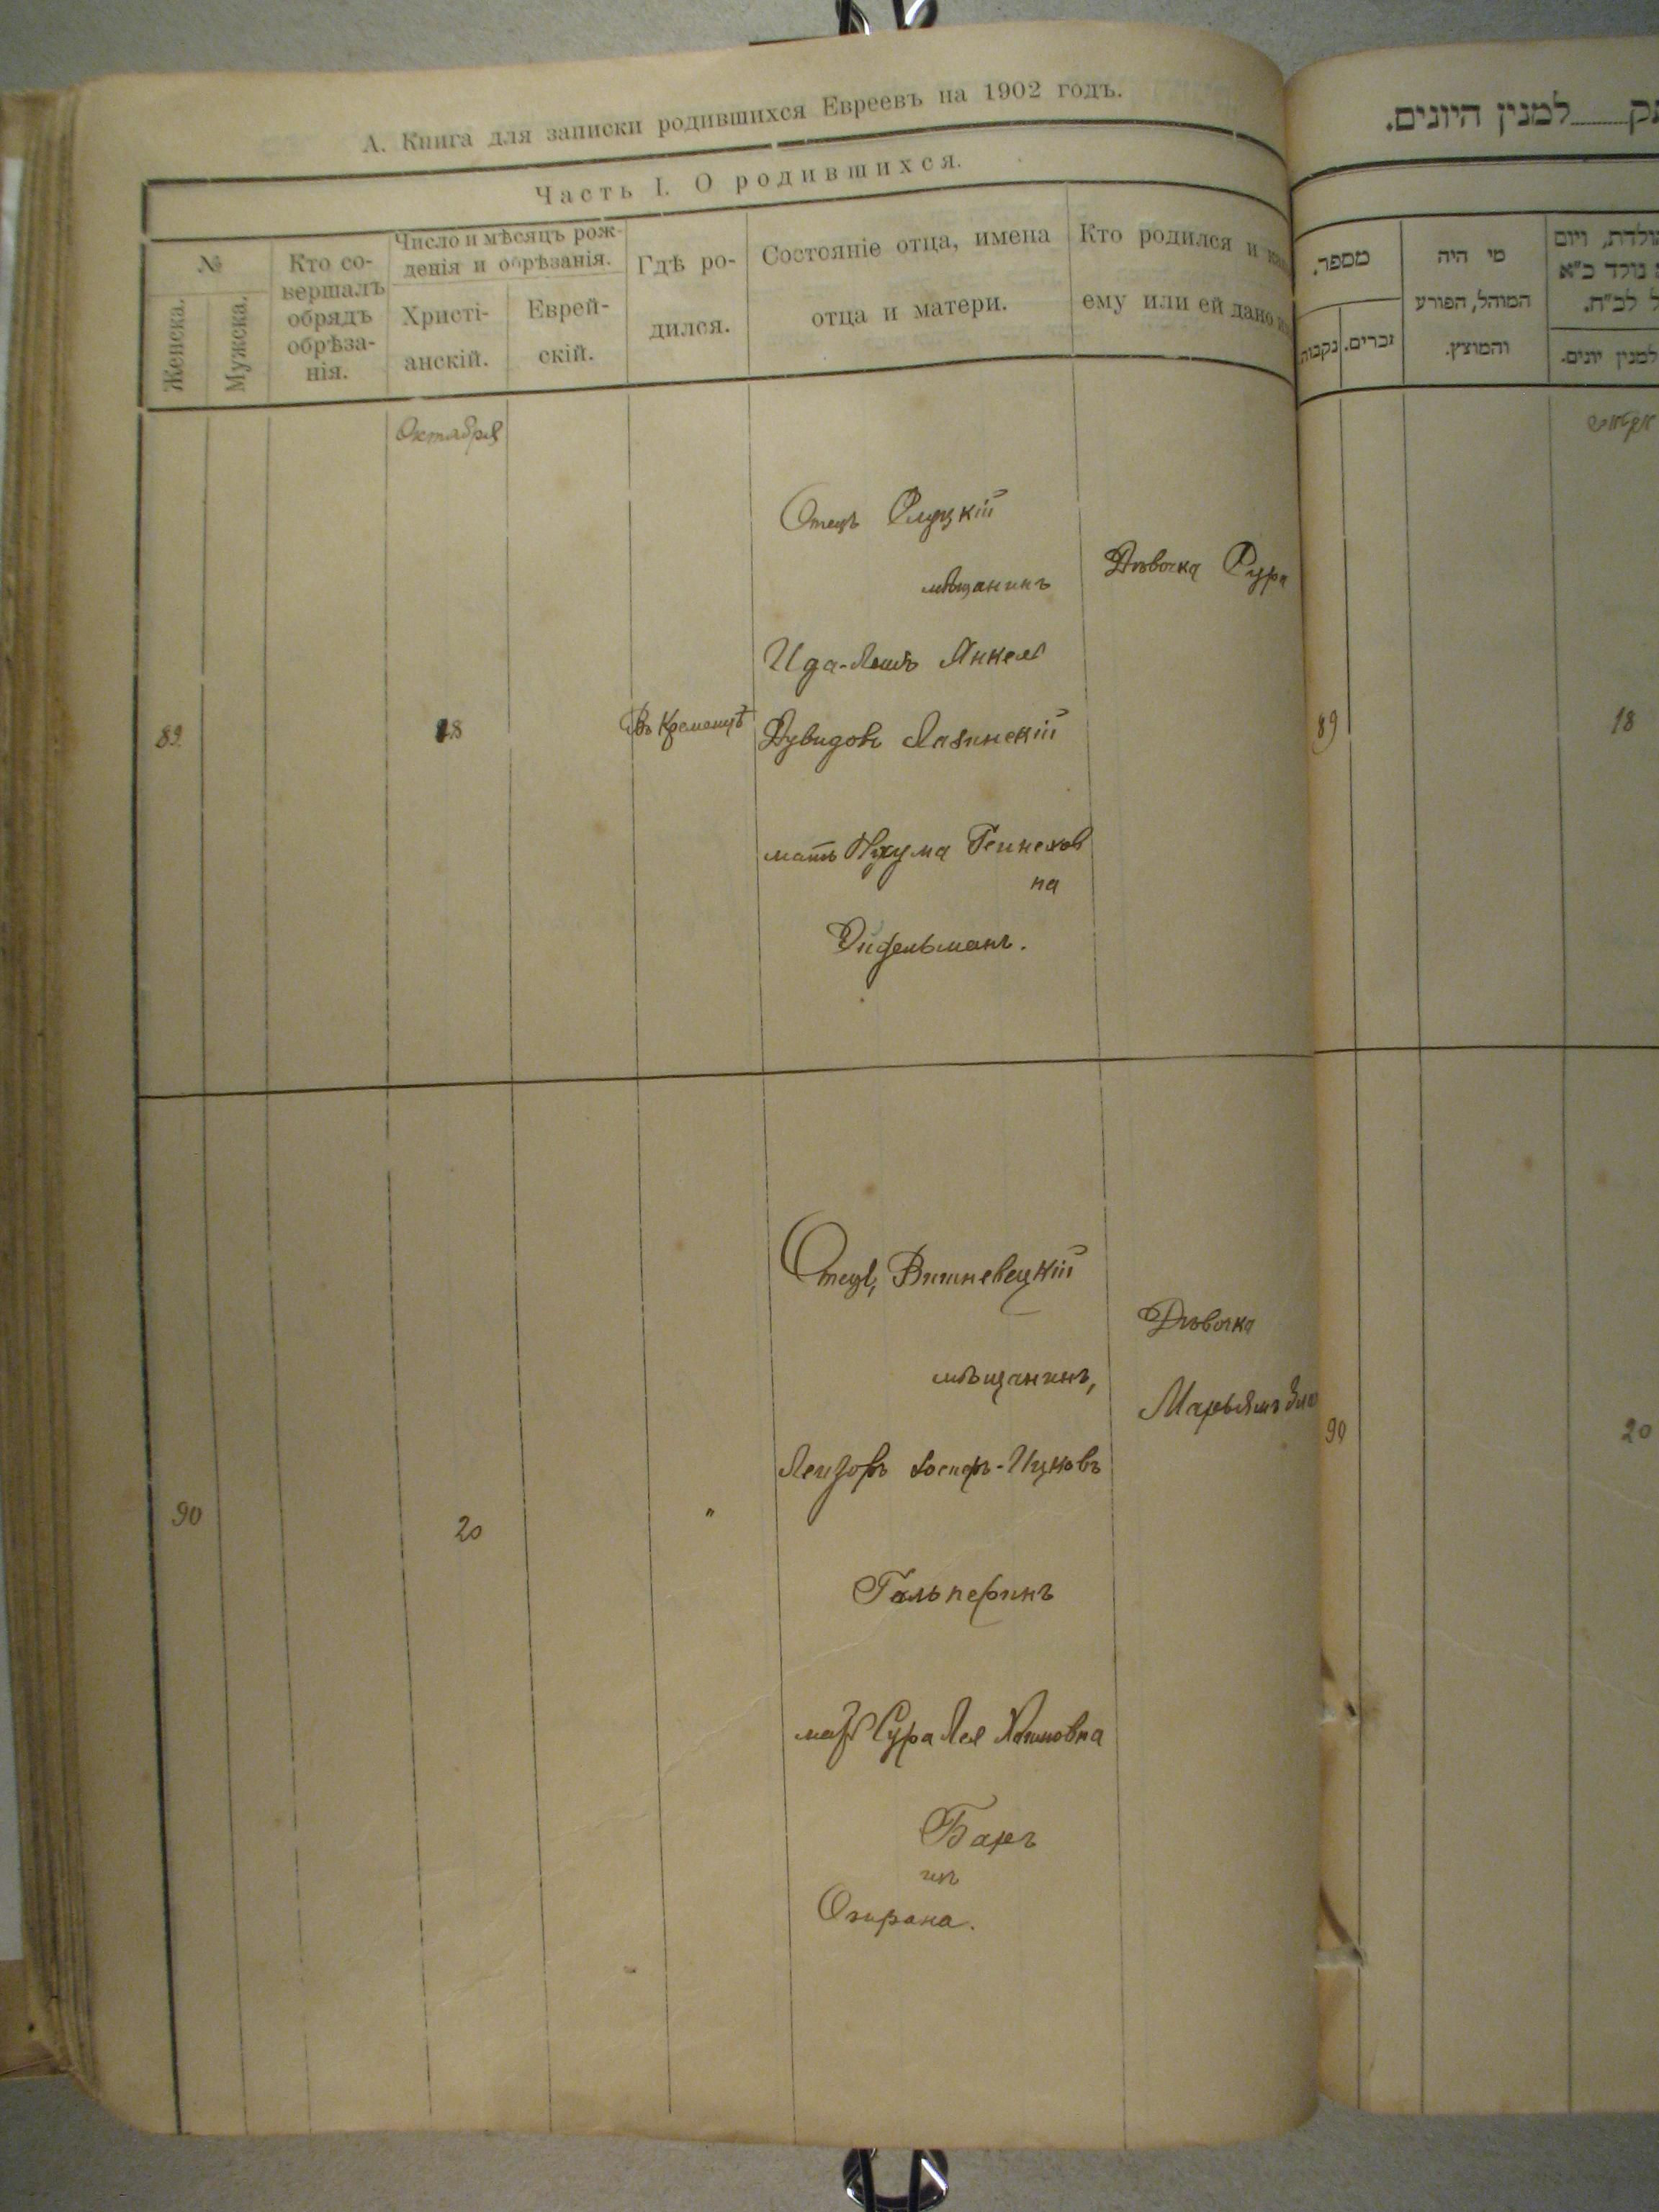 А. Книга для записки родившихся Евреевъ на 1902 годъ.
Часть I. О родившихся.
№
Женска.
Мужска.
Кто со-
вершалъ
обрядъ
обрѣза-
нія.
Число и мѣсяцъ рож-
денія и обрѣзанія.
Христі-
анскій.
Еврей-
скій.
Гдѣ ро-
дился.
Состояніе отца, имена
отца и матери.
Кто родился и
ему или ей дано
Октября
89
18
Въ Кременцѣ
Отецъ Слуцкій
мѣщанинъ
Янкель
Дувидовъ
мать Нухума
на
Эйдельманъ.
Дѣвочка Сура
90
20
"
Отецъ, Вишневецкій
мѣщанинъ,
Лейзоръ Іосифъ-Ицковъ
Гальперинъ
мать Сура Лея Хаимовна
Баръ
изъ
Дѣвочка
Марьямъ
למנין היונים.
מספר.
נקבות.
זכרים.
מי היה
המוהל, הפורע
והמוצץ.
ויום
נולד כ"א
לכ"ח.
למנין יונים.
89
18
90
20